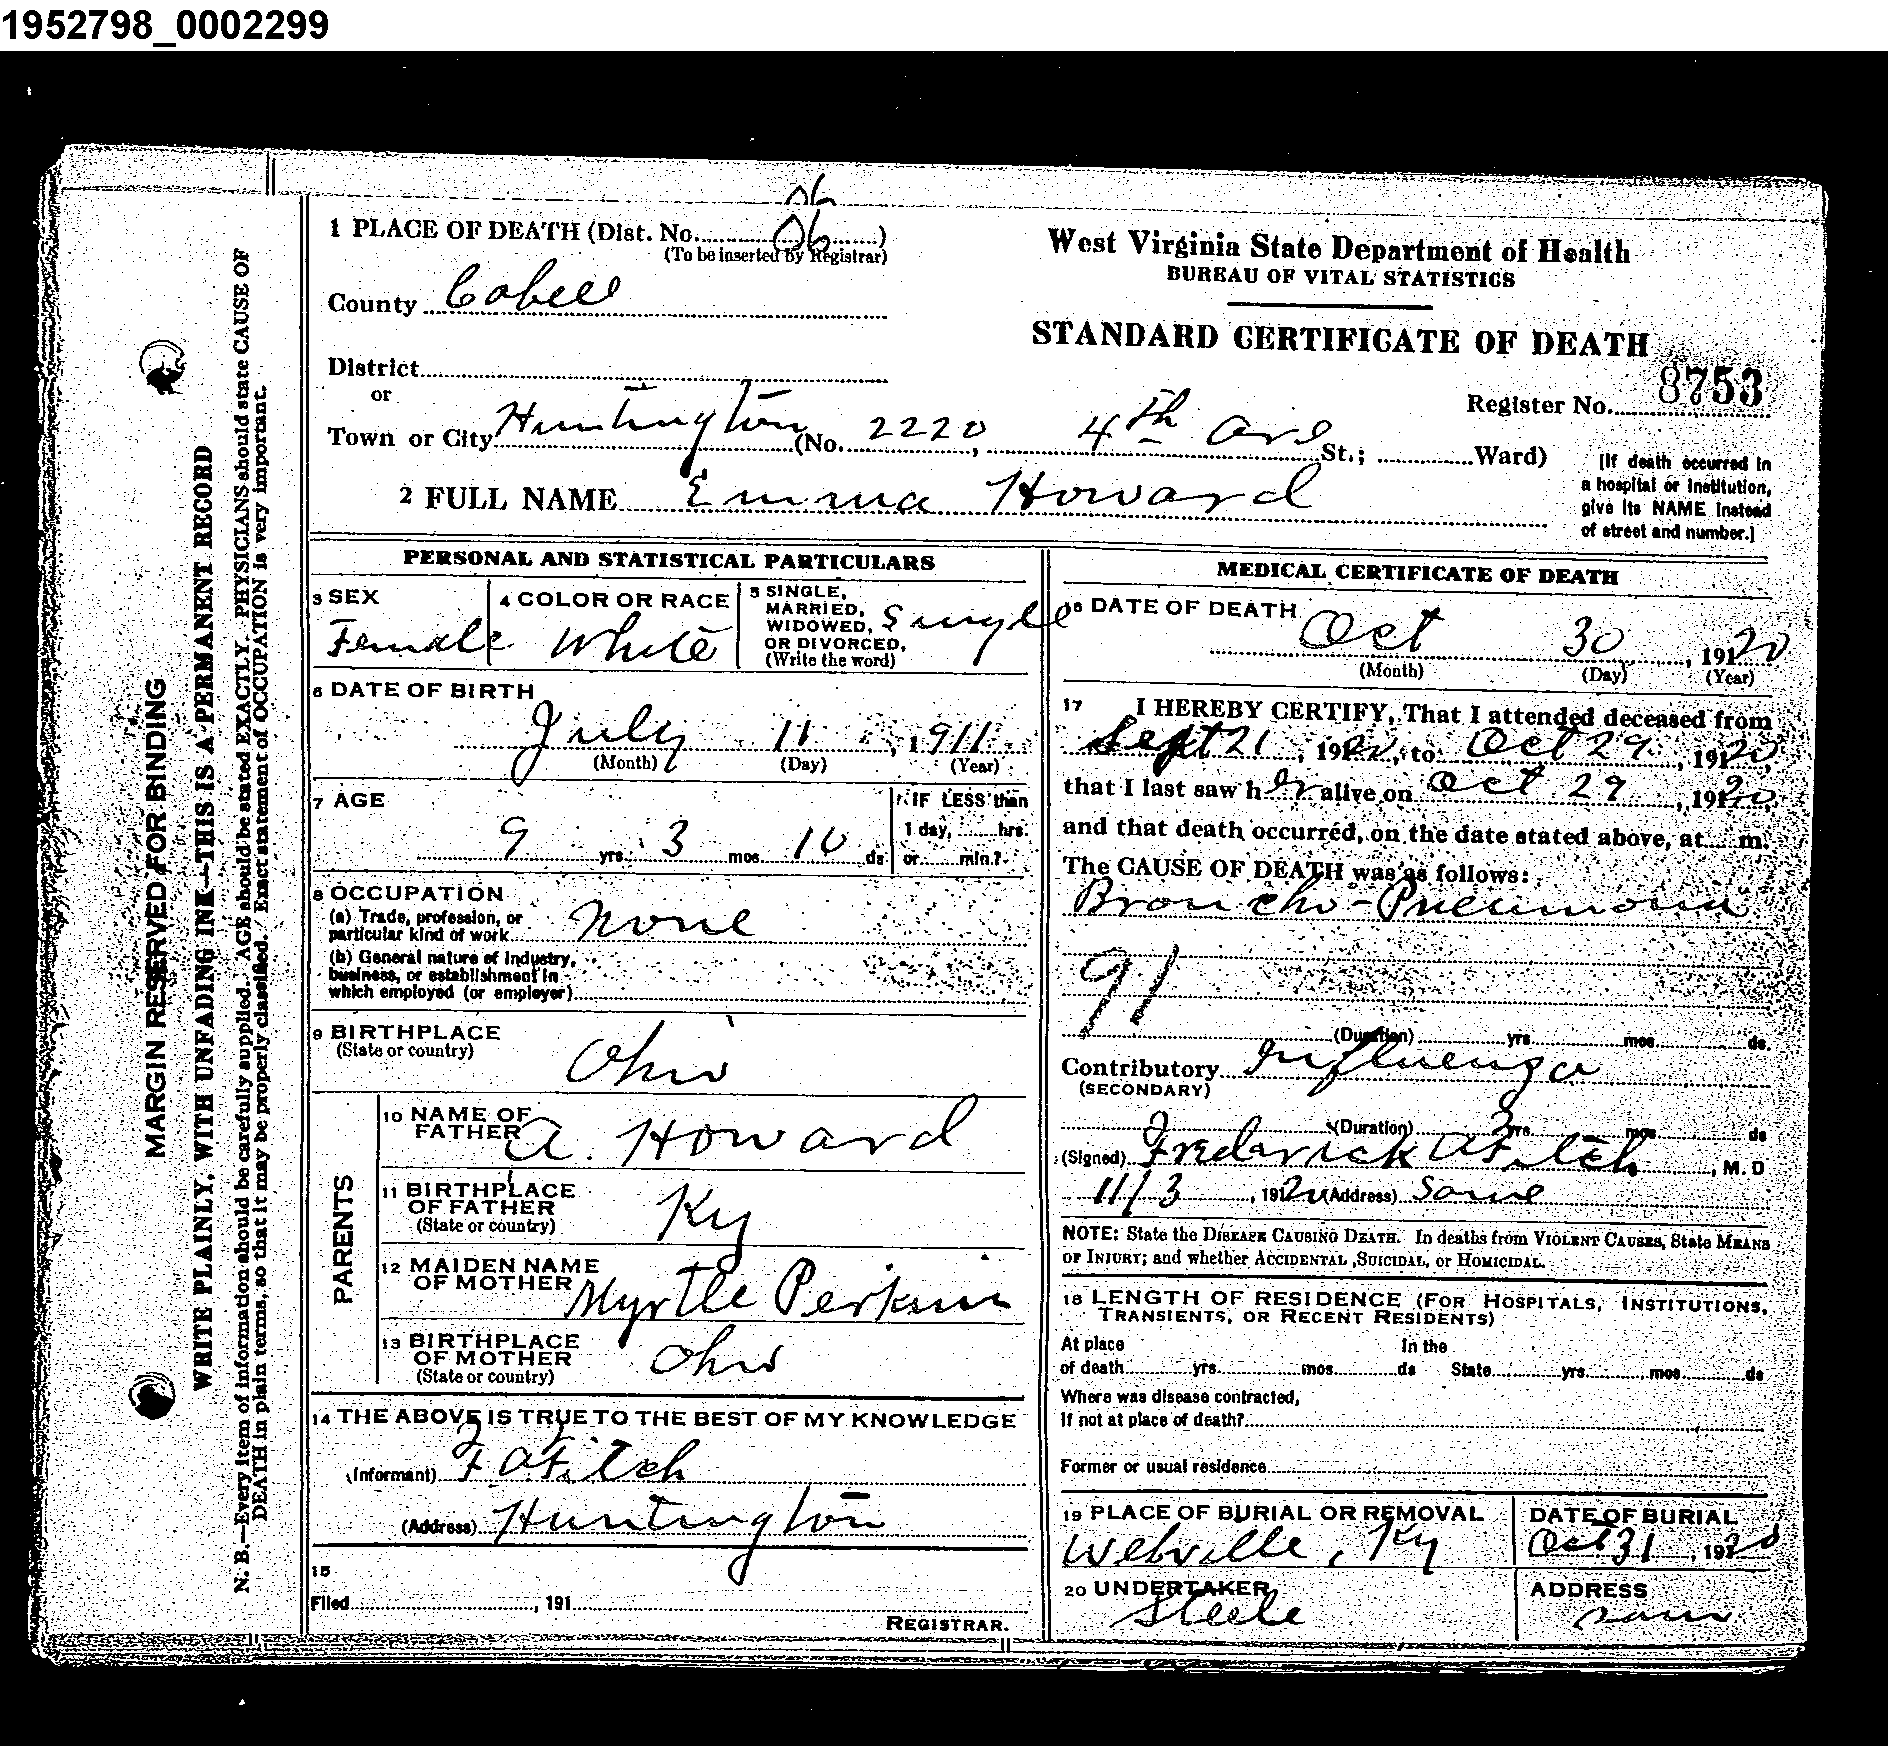 1952798_0002299
06
1 PLACE OF DEATH (Dist. No. 06 )
(To be inserted by Registrar)
County Cabell
District
or
Town or City Huntington (No. 2220, 4th Ave St.; Ward)
2 FULL NAME Emma Howard
West Virginia State Department of Health
BUREAU OF VITAL STATISTICS
STANDARD CERTIFICATE OF DEATH
Register No. 8753
[If death occurred in
a hospital or institution,
give its NAME instead
of street and number.]
PERSONAL AND STATISTICAL PARTICULARS
3 SEX
Female
4 COLOR OR RACE
White
5 SINGLE,
MARRIED,
WIDOWED,
OR DIVORCED,
(Write the word)
Single
6 DATE OF BIRTH
July 11, 1911
(Month) (Day) (Year)
7 AGE
9 yrs. 3 mos. 10 ds
IF LESS than
1 day, hrs.
or min.?
8 OCCUPATION
(a) Trade, profession, or
particular kind of work None
(b) General nature of Industry,
business, or establishment in
which employed (or employer)
9 BIRTHPLACE
(State or country)
Ohio
PARENTS
10 NAME OF
FATHER A. Howard
11 BIRTHPLACE
OF FATHER
(State or country)
Ky
12 MAIDEN NAME
OF MOTHER Myrtle Perkins
13 BIRTHPLACE
OF MOTHER
(State or country)
Ohio
14 THE ABOVE IS TRUE TO THE BEST OF MY KNOWLEDGE
(Informant) F A Fitch
(Address) Huntington
15
Filed , 191
REGISTRAR.
MEDICAL CERTIFICATE OF DEATH
16 DATE OF DEATH
Oct 30, 19120
(Month) (Day) (Year)
17 I HEREBY CERTIFY, That I attended deceased from
Sept 21, 1920, to Oct 29, 19120,
that I last saw her alive on Oct 29, 19120,
and that death occurred, on the date stated above, at m.
The CAUSE OF DEATH was as follows:
Broncho-Pneumonia
91
(Duration) yrs mos ds.
Contributory Influenza
(SECONDARY)
(Duration) yrs mos ds
(Signed) Frederick A Fitch, M. D
11/3, 19120 (Address) Same
NOTE: State the DISEASE CAUSING DEATH. In deaths from VIOLENT CAUSES, State MEANS
OF INJURY; and whether ACCIDENTAL ,SUICIDAL, or HOMICIDAL.
18 LENGTH OF RESIDENCE (FOR HOSPITALS, INSTITUTIONS,
TRANSIENTS, OR RECENT RESIDENTS)
At place In the
of death yrs. mos. ds State yrs. mos. ds
Where was disease contracted,
If not at place of death?
Former or usual residence
19 PLACE OF BURIAL OR REMOVAL
Webville, Ky
DATE OF BURIAL
Oct 31, 19120
20 UNDERTAKER
Steele
ADDRESS
Same
MARGIN RESERVED FOR BINDING
WRITE PLAINLY, WITH UNFADING INK—THIS IS A PERMANENT RECORD
N. B.—Every item of information should be carefully supplied. AGE should be stated EXACTLY. PHYSICIANS should state CAUSE OF
DEATH in plain terms, so that it may be properly classified. Exact statement of OCCUPATION is very important.